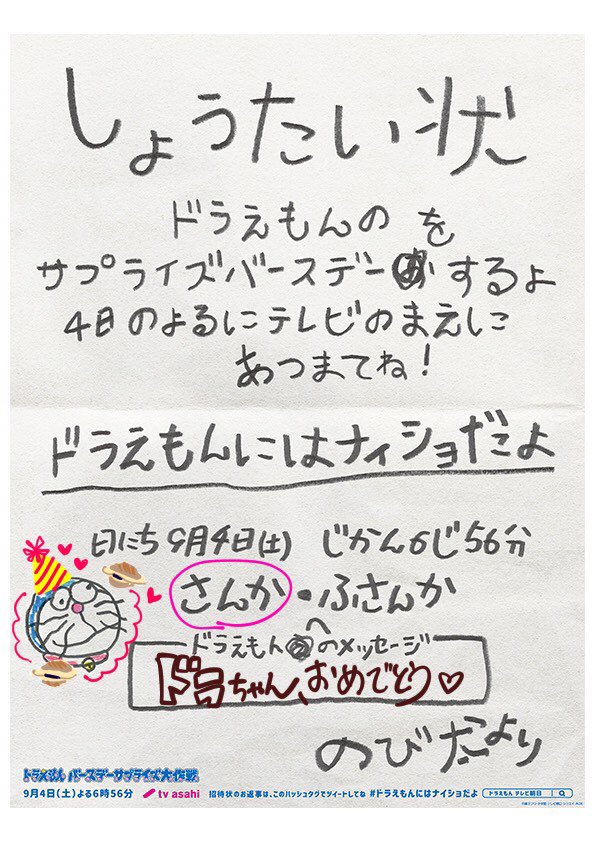 しょうたい状
ドラえもんのを
サプライズバースデーするよ
4日のよるにテレビのまえに
あつまてね!
ドラえもんにはナイショだよ
日にち9月4日(土) じかん6じ56分
さんか・ふさんか
ドラえもんへのメッセージ
ドラちゃん、おめでとう♡
のびたより
ドラえもん バースデーサプライズ大作戦
9月4日(土)よる6時56分 tv asahi 招待状のお返事は、このハッシュタグでツイートしてね #ドラえもんにはナイショだよ ドラえもん テレビ朝日